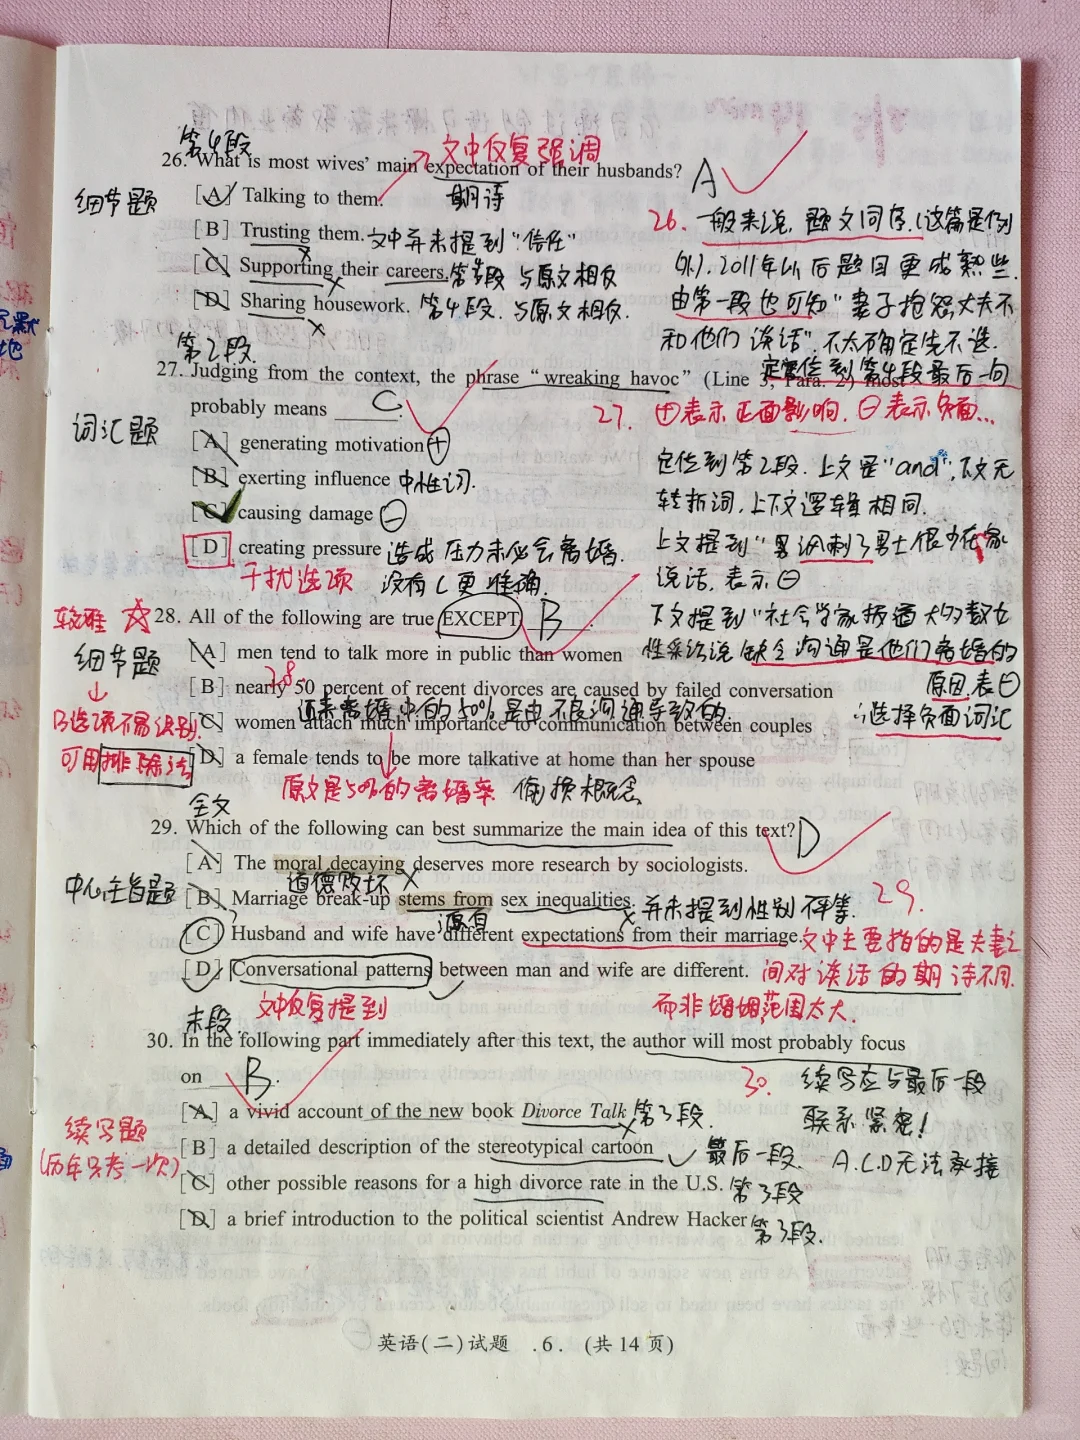 第4段
文中反复强调
26. What is most wives' main expectation of their husbands? A
细节题
[A] Talking to them. 期待
[B] Trusting them. 文中并未提到"信任"
[C] Supporting their careers. 与原文相反
[D] Sharing housework. 第4段. 与原文相反.
26. 一般来说, 题文同序. (这篇是例
外). 2011年以后题目更成熟些.
由第一段也可知"妻子抱怨丈夫不
和他们谈话", 不太确定先不选.
定位到第4段最后一句
第2段.
27. Judging from the context, the phrase "wreaking havoc" (Line 3, Para. 2) most
probably means C.
词汇题
[A] generating motivation +
[B] exerting influence 中性词.
[C] causing damage −
[D] creating pressure 造成压力未必会离婚.
干扰选项 没有C更准确.
27. +表示正面影响. −表示负面...
定位到第2段. 上文是"and", 下文无
转折词, 上下文逻辑相同.
上文提到"男士很少在家
说话, 表示 −
下文提到"社会学家报道大多数女
性采访说缺乏沟通是他们离婚的
原因. 表 −
∴选择负面词汇
较难 ☆ 28. All of the following are true EXCEPT B.
细节题
[A] men tend to talk more in public than women
28.
[B] nearly 50 percent of recent divorces are caused by failed conversation
近来离婚中的50%是由不良沟通导致的.
[C] women attach much importance to communication between couples
[D] a female tends to be more talkative at home than her spouse
↓
B选项不易识别.
可用排除法
原文是50%的离婚率 偷换概念
全文
29. Which of the following can best summarize the main idea of this text? D
[A] The moral decaying deserves more research by sociologists.
道德败坏 ×
中心主旨题 [B] Marriage break-up stems from sex inequalities. 并未提到性别不平等.
源自
29.
[C] Husband and wife have different expectations from their marriage. 文中主要指的是夫妻之
[D] Conversational patterns between man and wife are different. 间对谈话的期待不同.
文中反复提到 而非婚姻, 范围太大.
末段.
30. In the following part immediately after this text, the author will most probably focus
on B.
[A] a vivid account of the new book Divorce Talk 第3段.
[B] a detailed description of the stereotypical cartoon ✓ 最后一段.
[C] other possible reasons for a high divorce rate in the U.S. 第3段
[D] a brief introduction to the political scientist Andrew Hacker 第3段.
续写题
(历年只考一次)
30. 续写应与最后一段
联系紧密!
A.C.D无法承接
英语(二)试题 .6. (共14页)